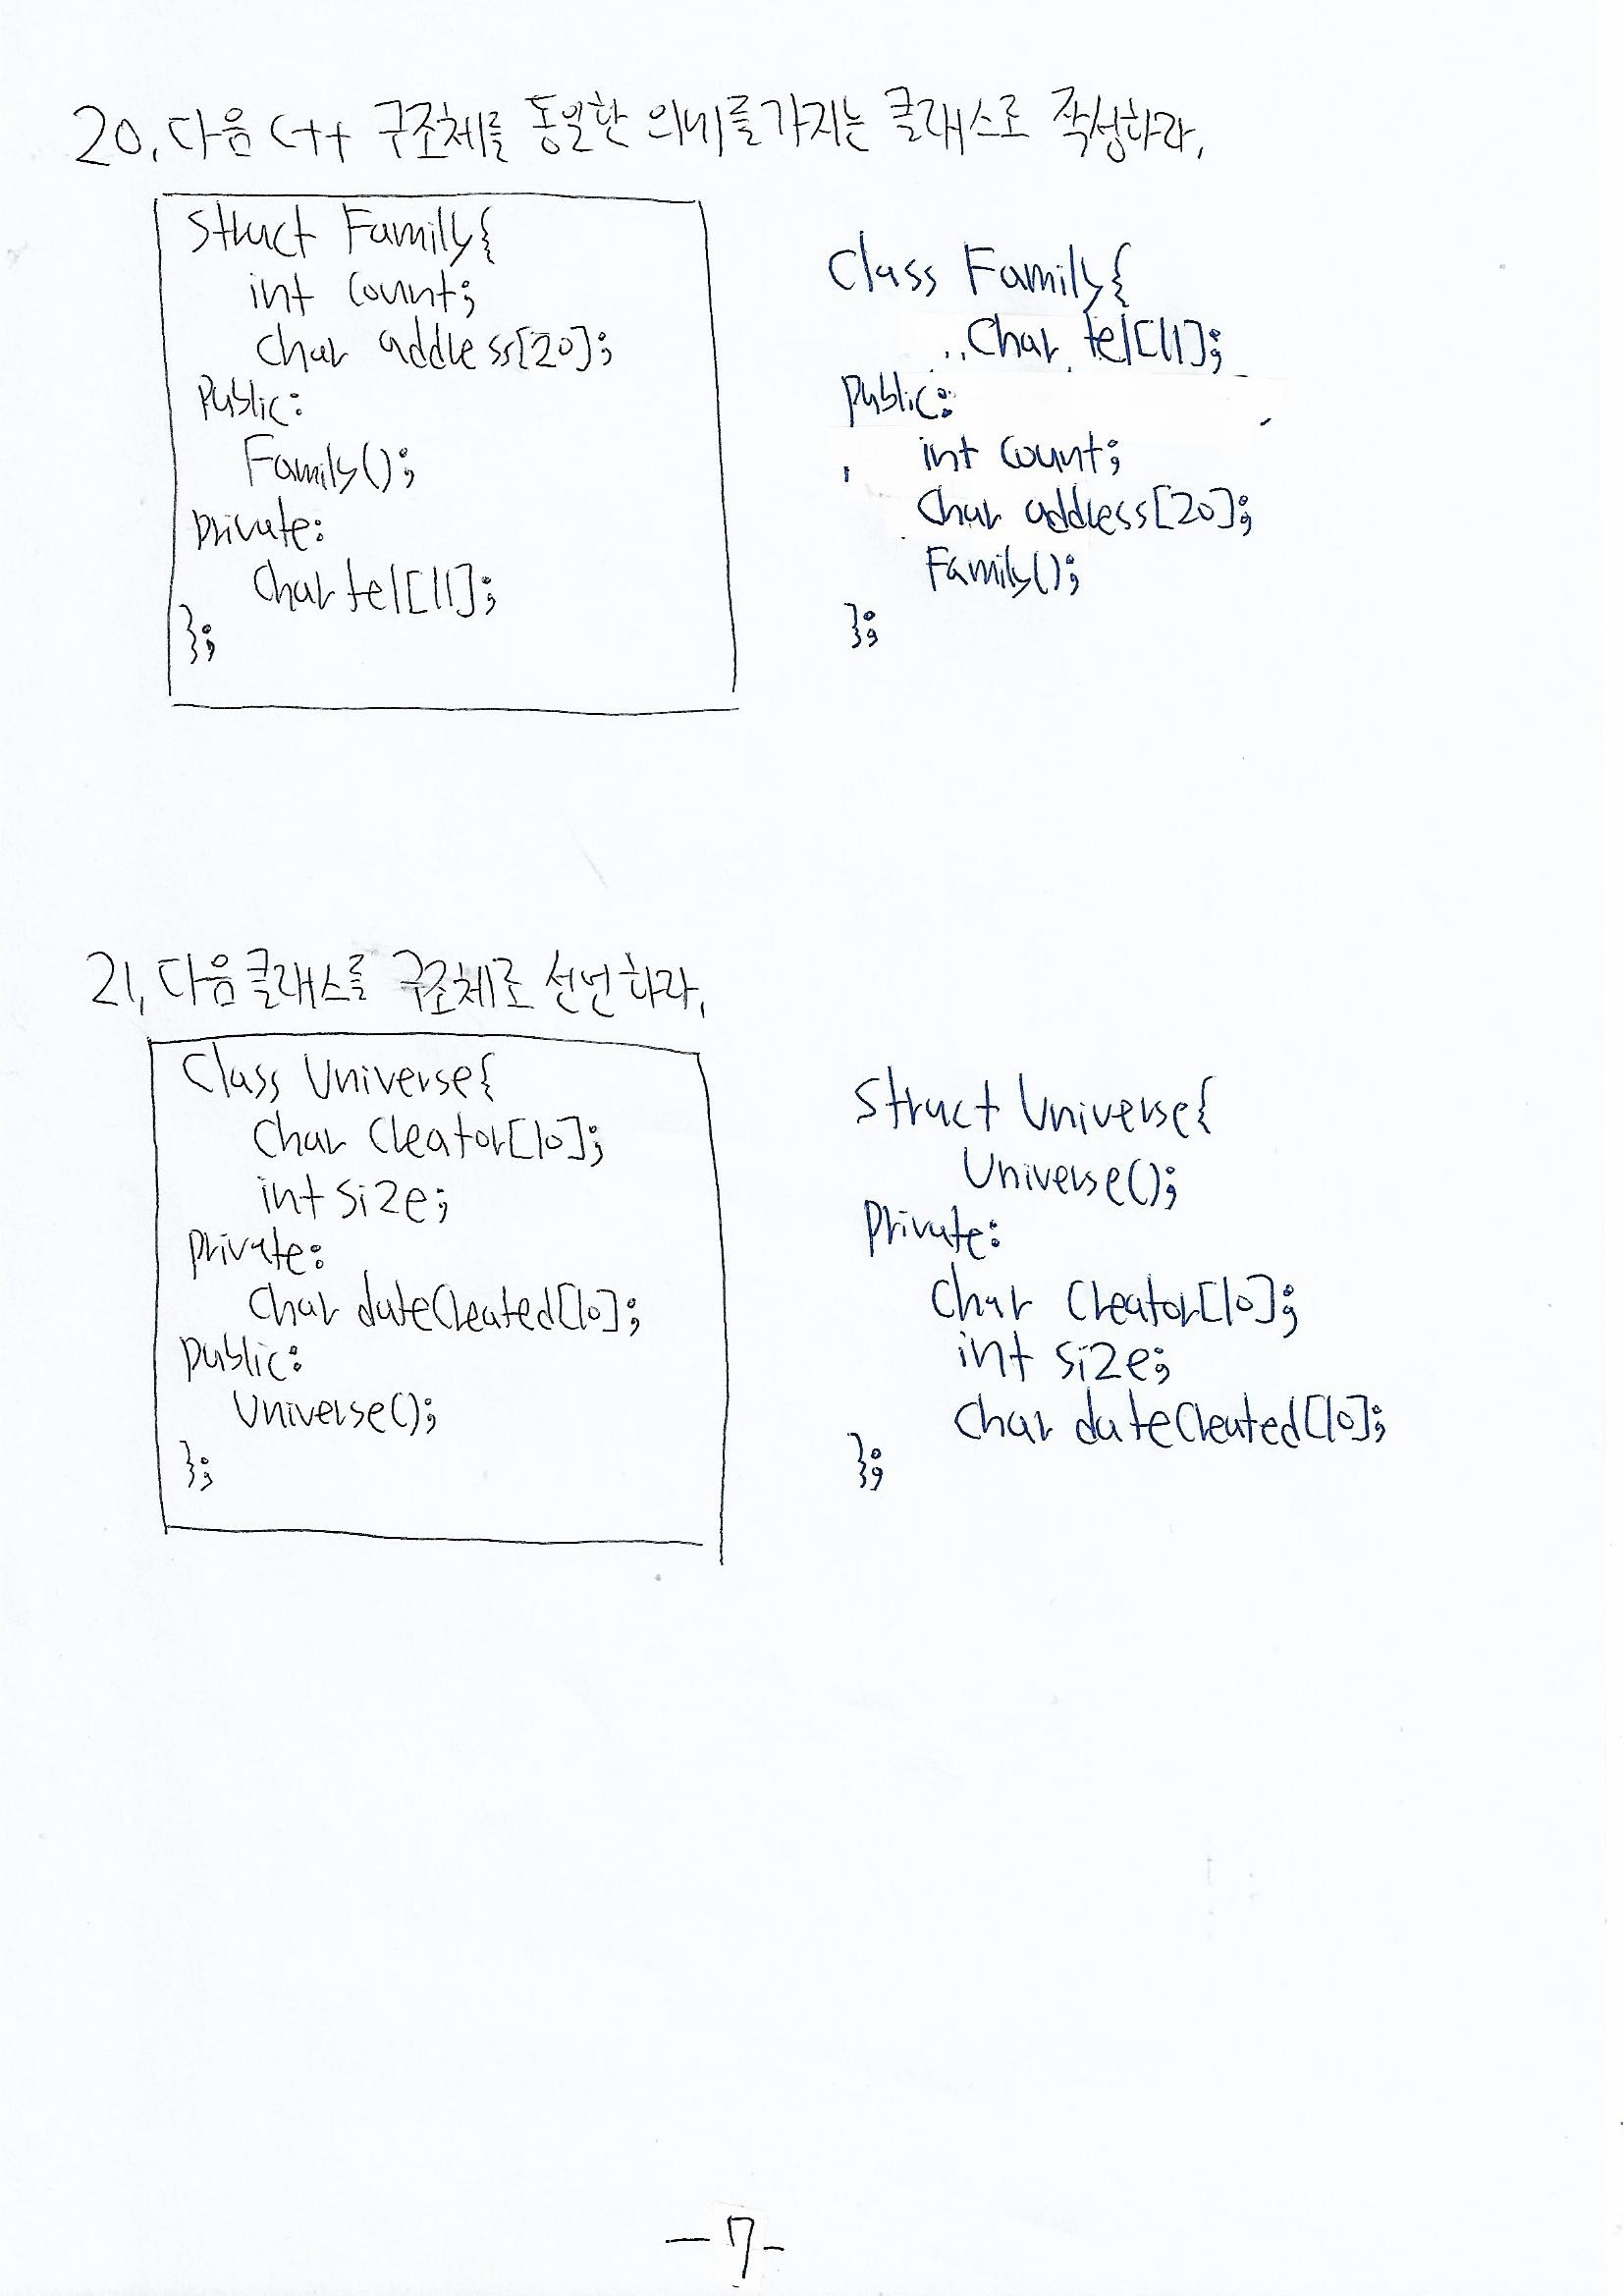 20. 다음 C++ 구조체를 동일한 의미를 가지는 클래스로 작성하라.
struct Family{
int count;
char address[20];
public:
Family();
private:
char tel[11];
};
class Family{
char tel[11];
public:
int count;
char address[20];
Family();
};
21. 다음 클래스를 구조체로 선언하라.
class Universe{
char creator[10];
int size;
private:
char dateCreated[10];
public:
Universe();
};
struct Universe{
Universe();
private:
char creator[10];
int size;
char dateCreated[10];
};
-7-